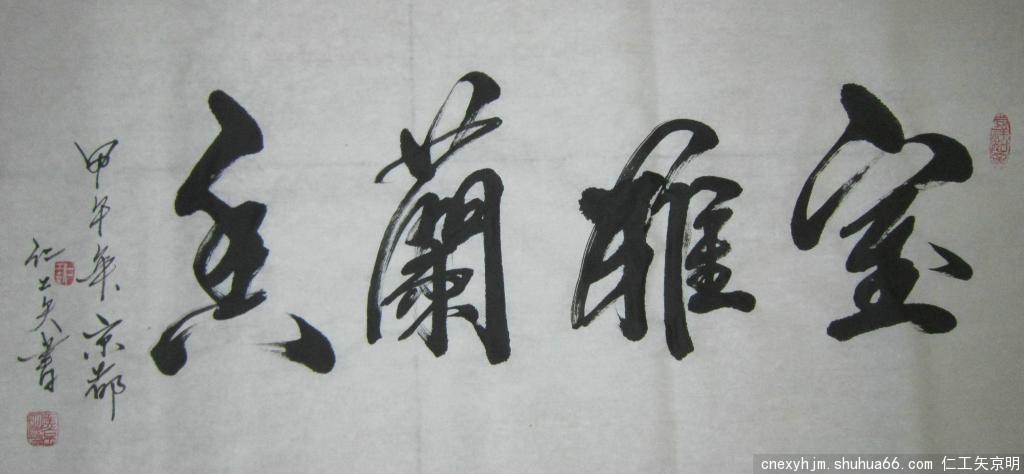 室雅蘭香
甲午年京都
仁工矢書
cnexyhjm.shuhua66.com 仁工矢京明